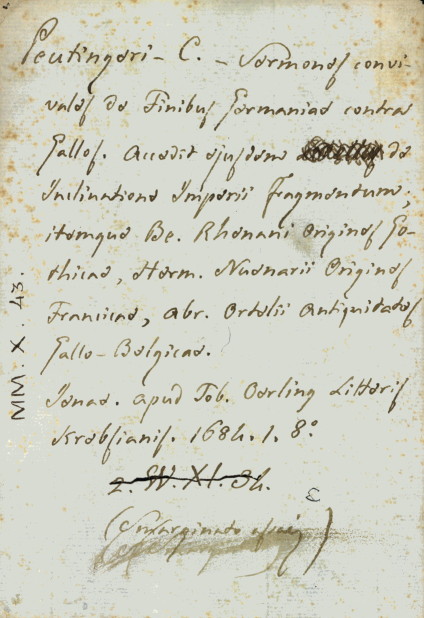 Peutingeri - C. - Sermones convi-
vales de Finibus Germaniae contra
Gallos. Accedit ejusdem de
Inclinatione Imperii Fragmentum;
itemque Be. Rhenani Origines Go-
thicae, Herm. Nuenarii Origines
Francicae, Abr. Ortelii Antiquitates
Gallo-Belgicae.
Jenae. apud Tob. Oerling Litteris
Krebsianis. 1684. 1. 8°.
2. W. XI. 34.
MM. X. 43.